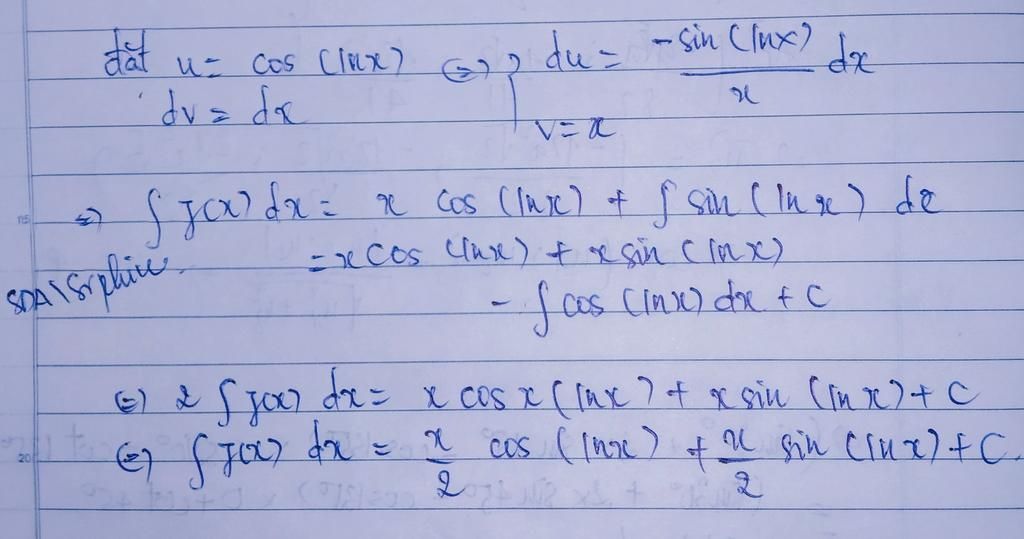 đặt u = cos (lnx) ⇔ { du = -sin (lnx)/x dx
dv = dx v = x
⇒ ∫ f(x) dx = x cos (lnx) + ∫ sin (ln x) dx
= x cos (lnx) + x sin (lnx)
- ∫ cos (lnx) dx + C
⇔ 2 ∫ f(x) dx = x cos x (lnx) + x sin (lnx) + C
⇔ ∫ f(x) dx = x/2 cos (lnx) + x/2 sin (lnx) + C.